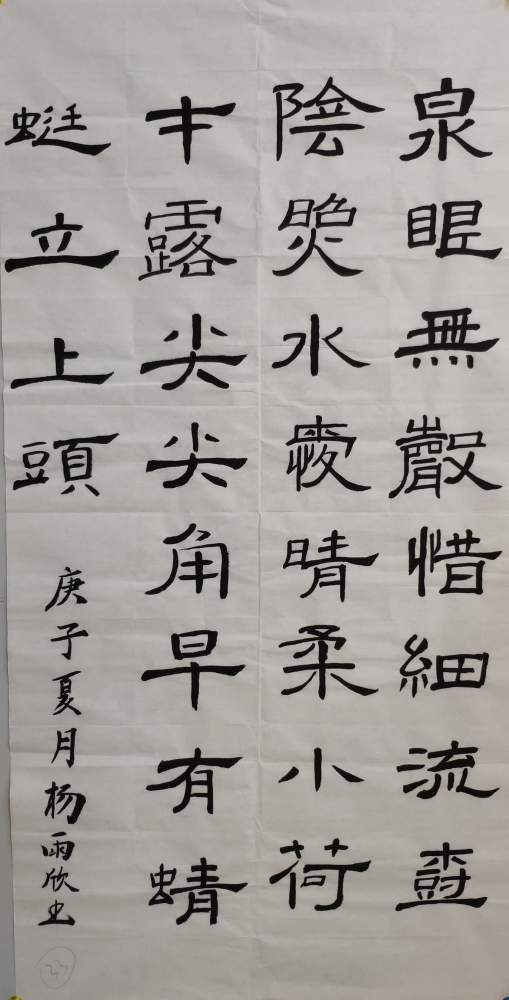 泉眼無聲惜細流樹
陰照水愛晴柔小荷
才露尖尖角早有蜻
蜓立上頭
庚子夏月杨雨欣书